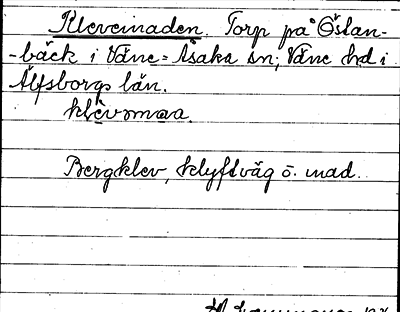 Klevemaden. Torp på Östan-
-bäck i Väne-Åsaka sn; Väne hd i
Älfsborgs län.
klèvmaa.
Bergklev, klyftväg o. mad.